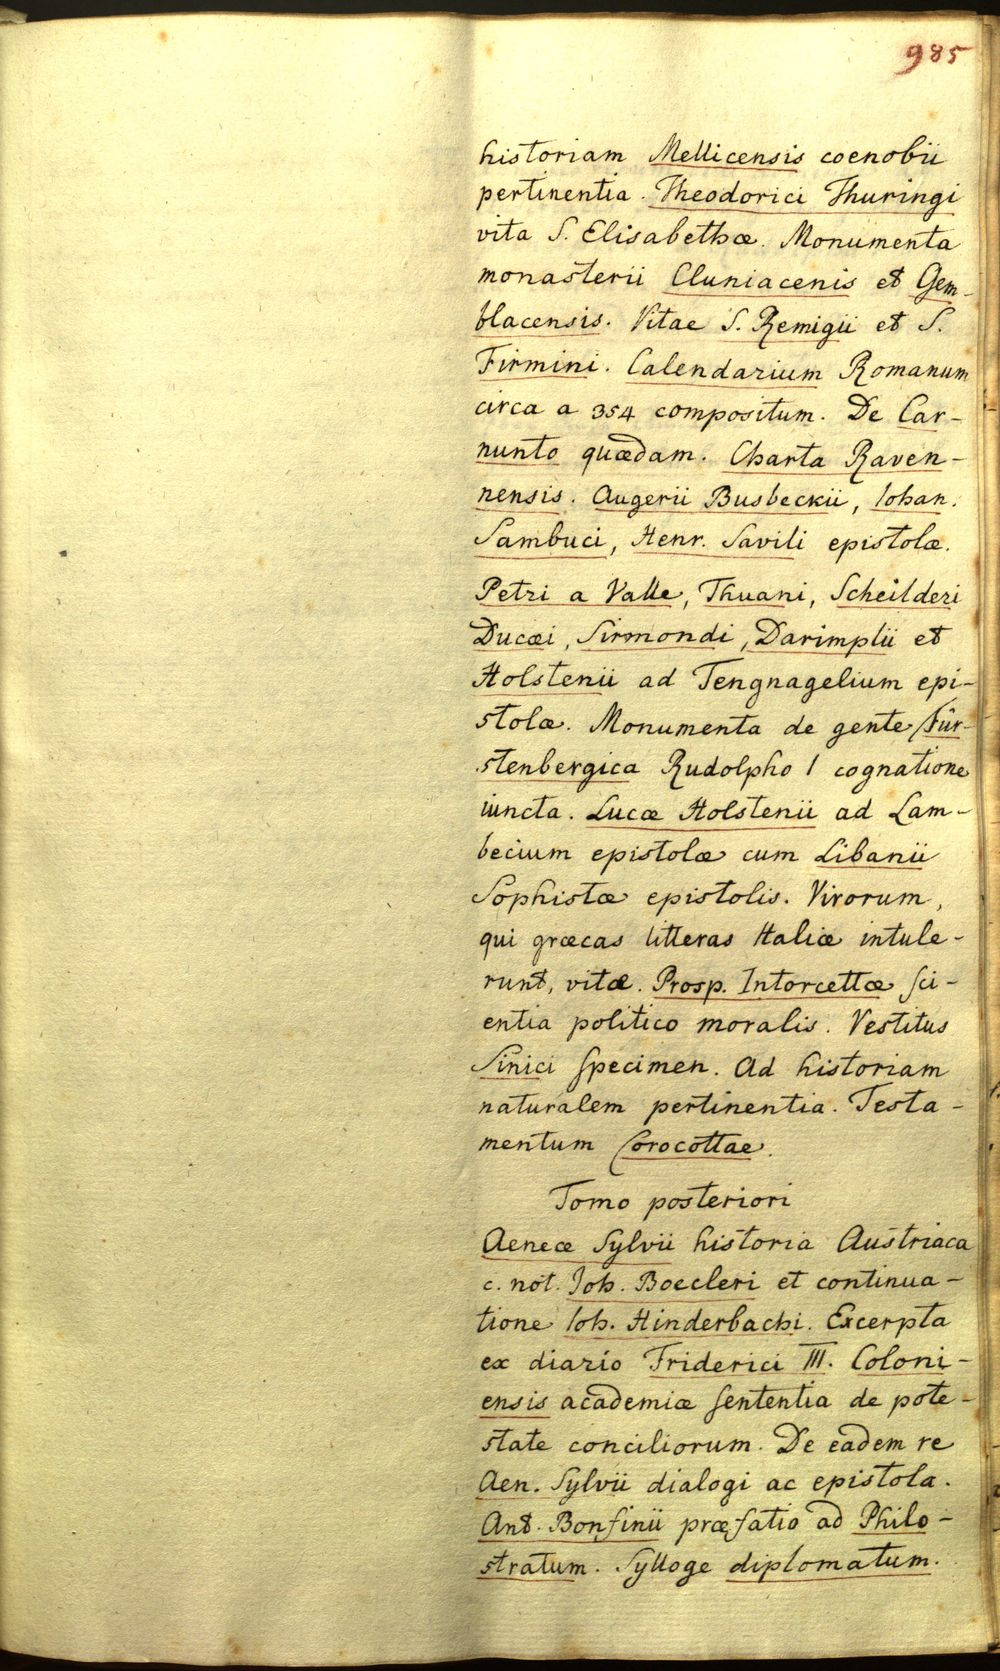 985
historiam Mellicensis coenobii
pertinentia. Theodorici Thuringi
vita S. Elisabethæ. Monumenta
monasterii Cluniacenis et Gem-
blacensis. Vitae S. Remigii et S.
Firmini. Calendarium Romanum
circa a 354 compositum. De Car-
nunto quædam. Charta Raven-
nensis. Augerii Busbeckii, Iohan.
Sambuci, Henr. Savili epistolæ.
Petri a Valle, Thuani, Scheilderi
Ducæi, Sirmondi, Darimplii et
Holstenii ad Tengnagelium epi-
stolæ. Monumenta de gente Für-
stenbergica Rudolpho I cognatione
iuncta. Lucæ Holstenii ad Lam-
becium epistolæ cum Libanii
Sophistæ epistolis. Virorum,
qui græcas litteras Italiæ intule-
runt, vitæ. Prosp. Intorcettæ sci-
entia politico moralis. Vestitus
Sinici specimen. Ad historiam
naturalem pertinentia. Testa-
mentum Corocottae.
Tomo posteriori
Aeneæ Sylvii historia Austriaca
c. not. Joh. Boecleri et continua-
tione Ioh. Hinderbachi. Excerpta
ex diario Friderici III. Coloni-
ensis academiæ sententia de pote-
state conciliorum. De eadem re
Aen. Sylvii dialogi ac epistola.
Ant. Bonfinii præfatio ad Philo-
stratum. Sylloge diplomatum.